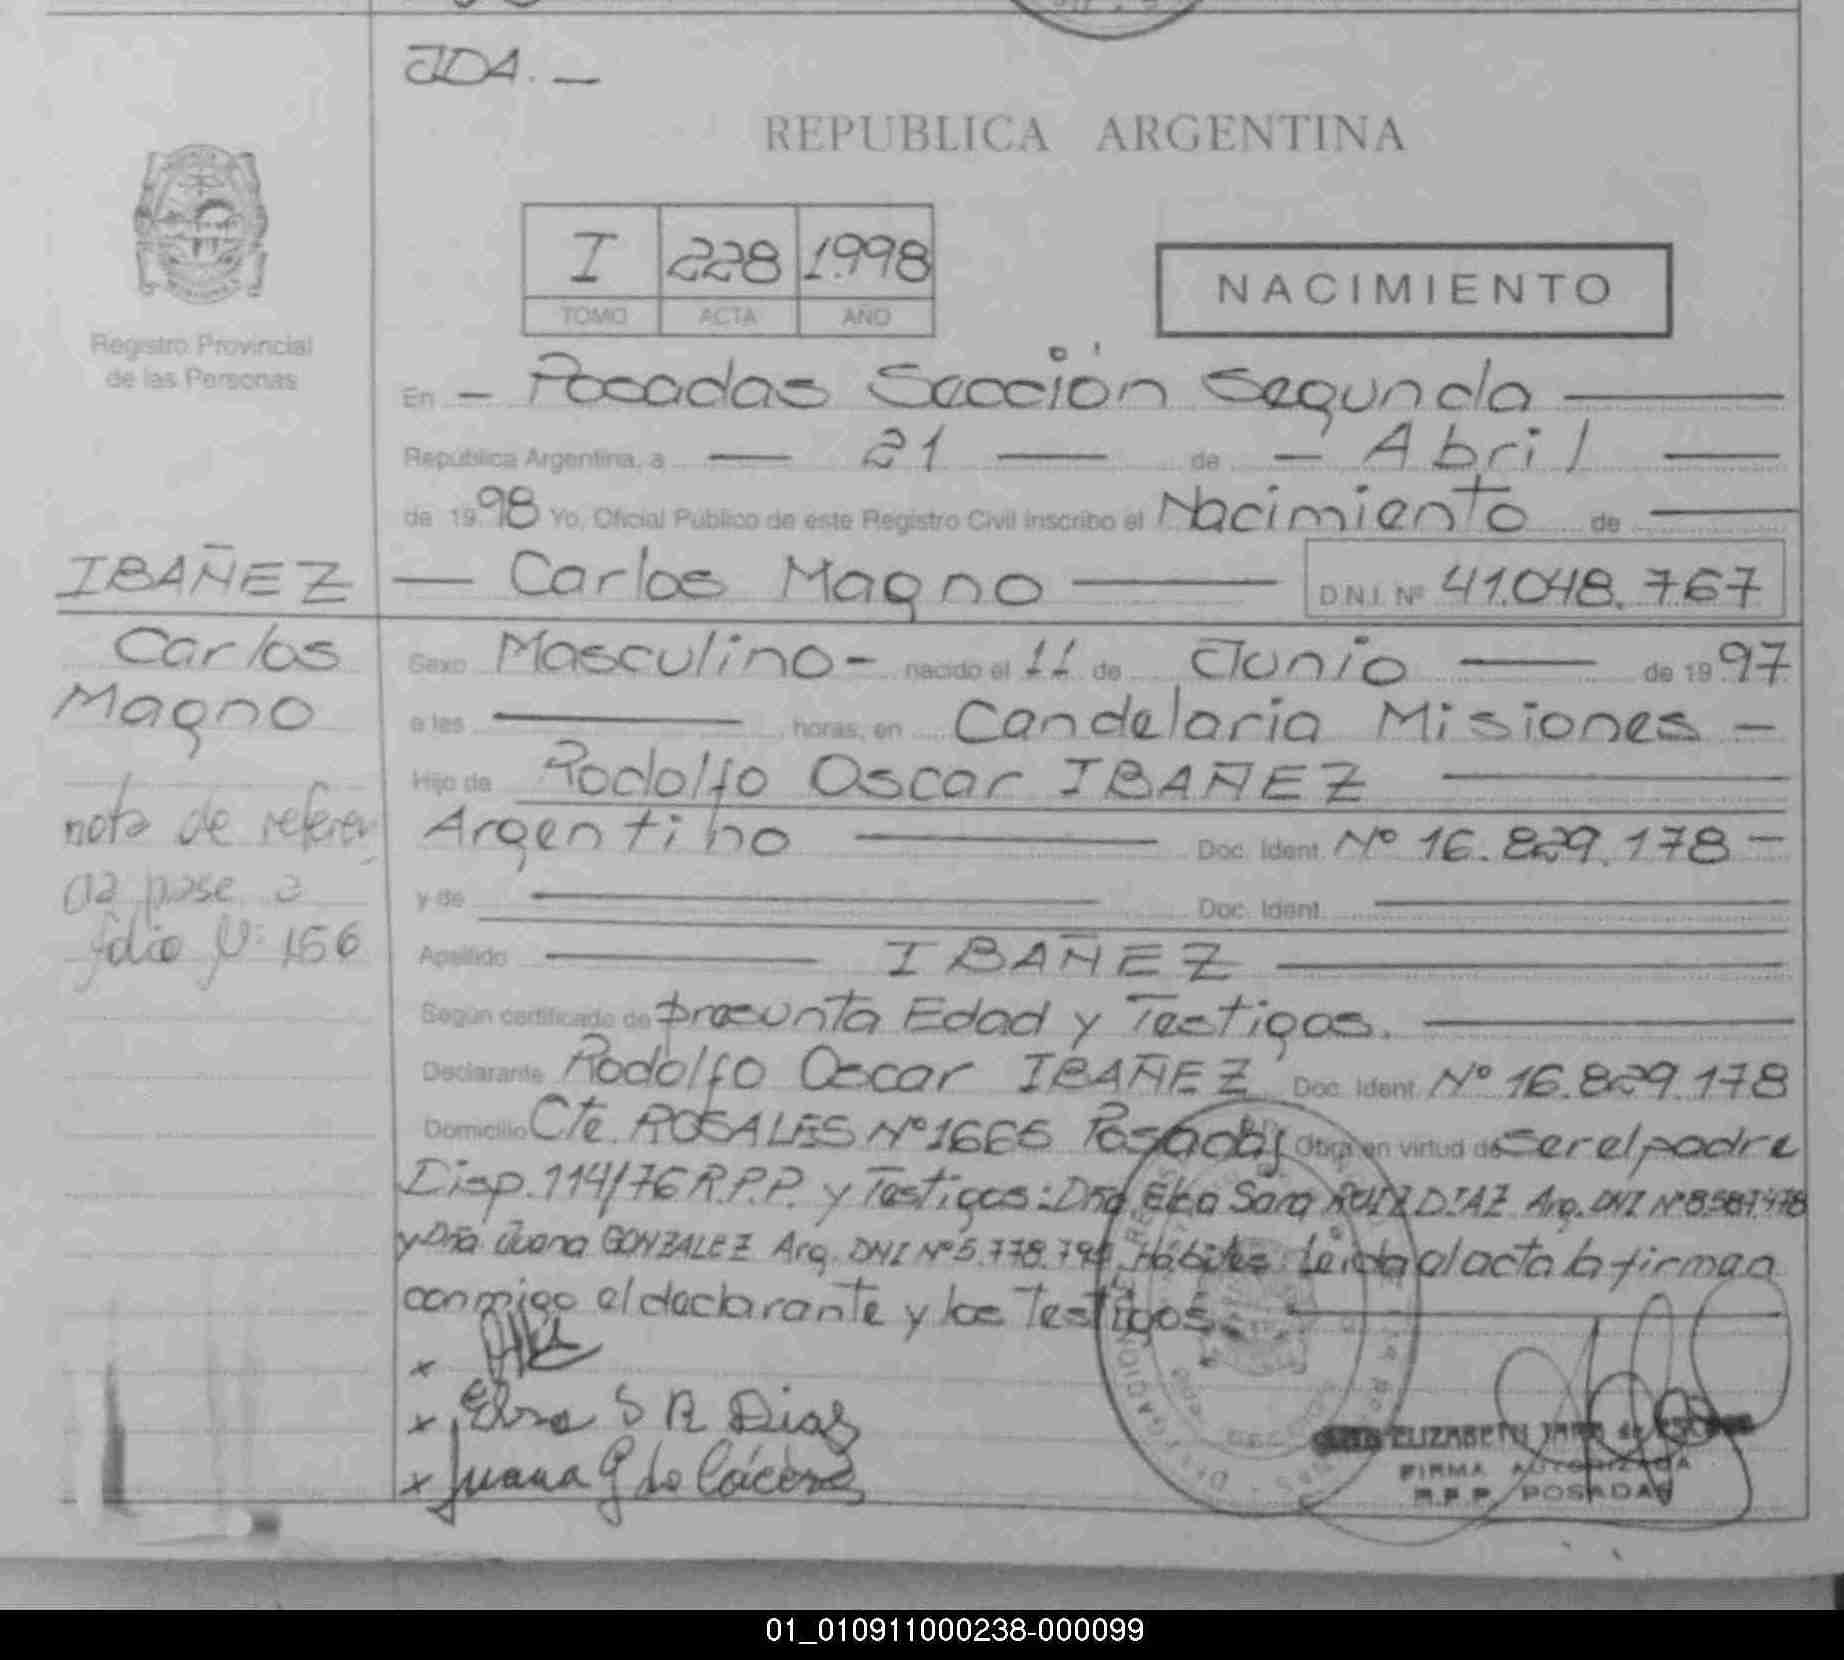 JDA. —
REPUBLICA ARGENTINA
I 228 1998
TOMO ACTA AÑO
NACIMIENTO
Registro Provincial
de las Personas
En — Posadas Sección Segunda
República Argentina, a — 21 — de — Abril —
de 1998 Yo, Oficial Público de este Registro Civil inscribo el Nacimiento de —
IBAÑEZ — Carlos Magno — D.N.I. Nº 41.048.767
Carlos
Magno
Sexo Masculino - nacido el 11 de Junio — de 1997
a las — horas, en Candelaria Misiones —
Hijo de Rodolfo Oscar IBAÑEZ —
Argentino — Doc. Ident. Nº 16.829.178 —
y de — Doc. Ident. —
nota de referen
cia pase a
folio Nº 156
Apellido — IBAÑEZ —
Según certificado de presunta Edad y Testigos. —
Declarante Rodolfo Oscar IBAÑEZ Doc. Ident. Nº 16.829.178
Domicilio Cte. ROSALES Nº 1665 Posadas Obra en virtud de ser el padre
Disp. 114/76 R.P.P. y Testigos: Dña. Elsa Sara RUIZ DIAZ Arg. DNI Nº 8.587.478
y Dña Juana GONZALEZ Arg. DNI Nº 5.778.794 Hábiles. Leida el acta la firman
conmigo el declarante y los Testigos. —
x
x Elsa S R Diaz
x Juana G de Cáceres
ELIZABETH
FIRMA AUTORIZADA
R.P.P. POSADAS
01_010911000238-000099